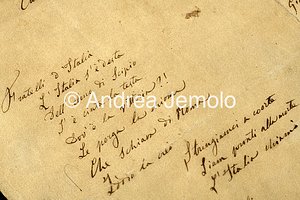 Fratelli d'Italia
L'Italia s'è desta
Dell'elmo di Scipio
S'è cinta la testa
Dov'è la vittoria?!
Le porga la chioma
Che schiava di Roma
Iddio la creò
Stringiamci a coorte
Siam pronti alla morte
L'Italia chiamò
© Andrea Jemolo